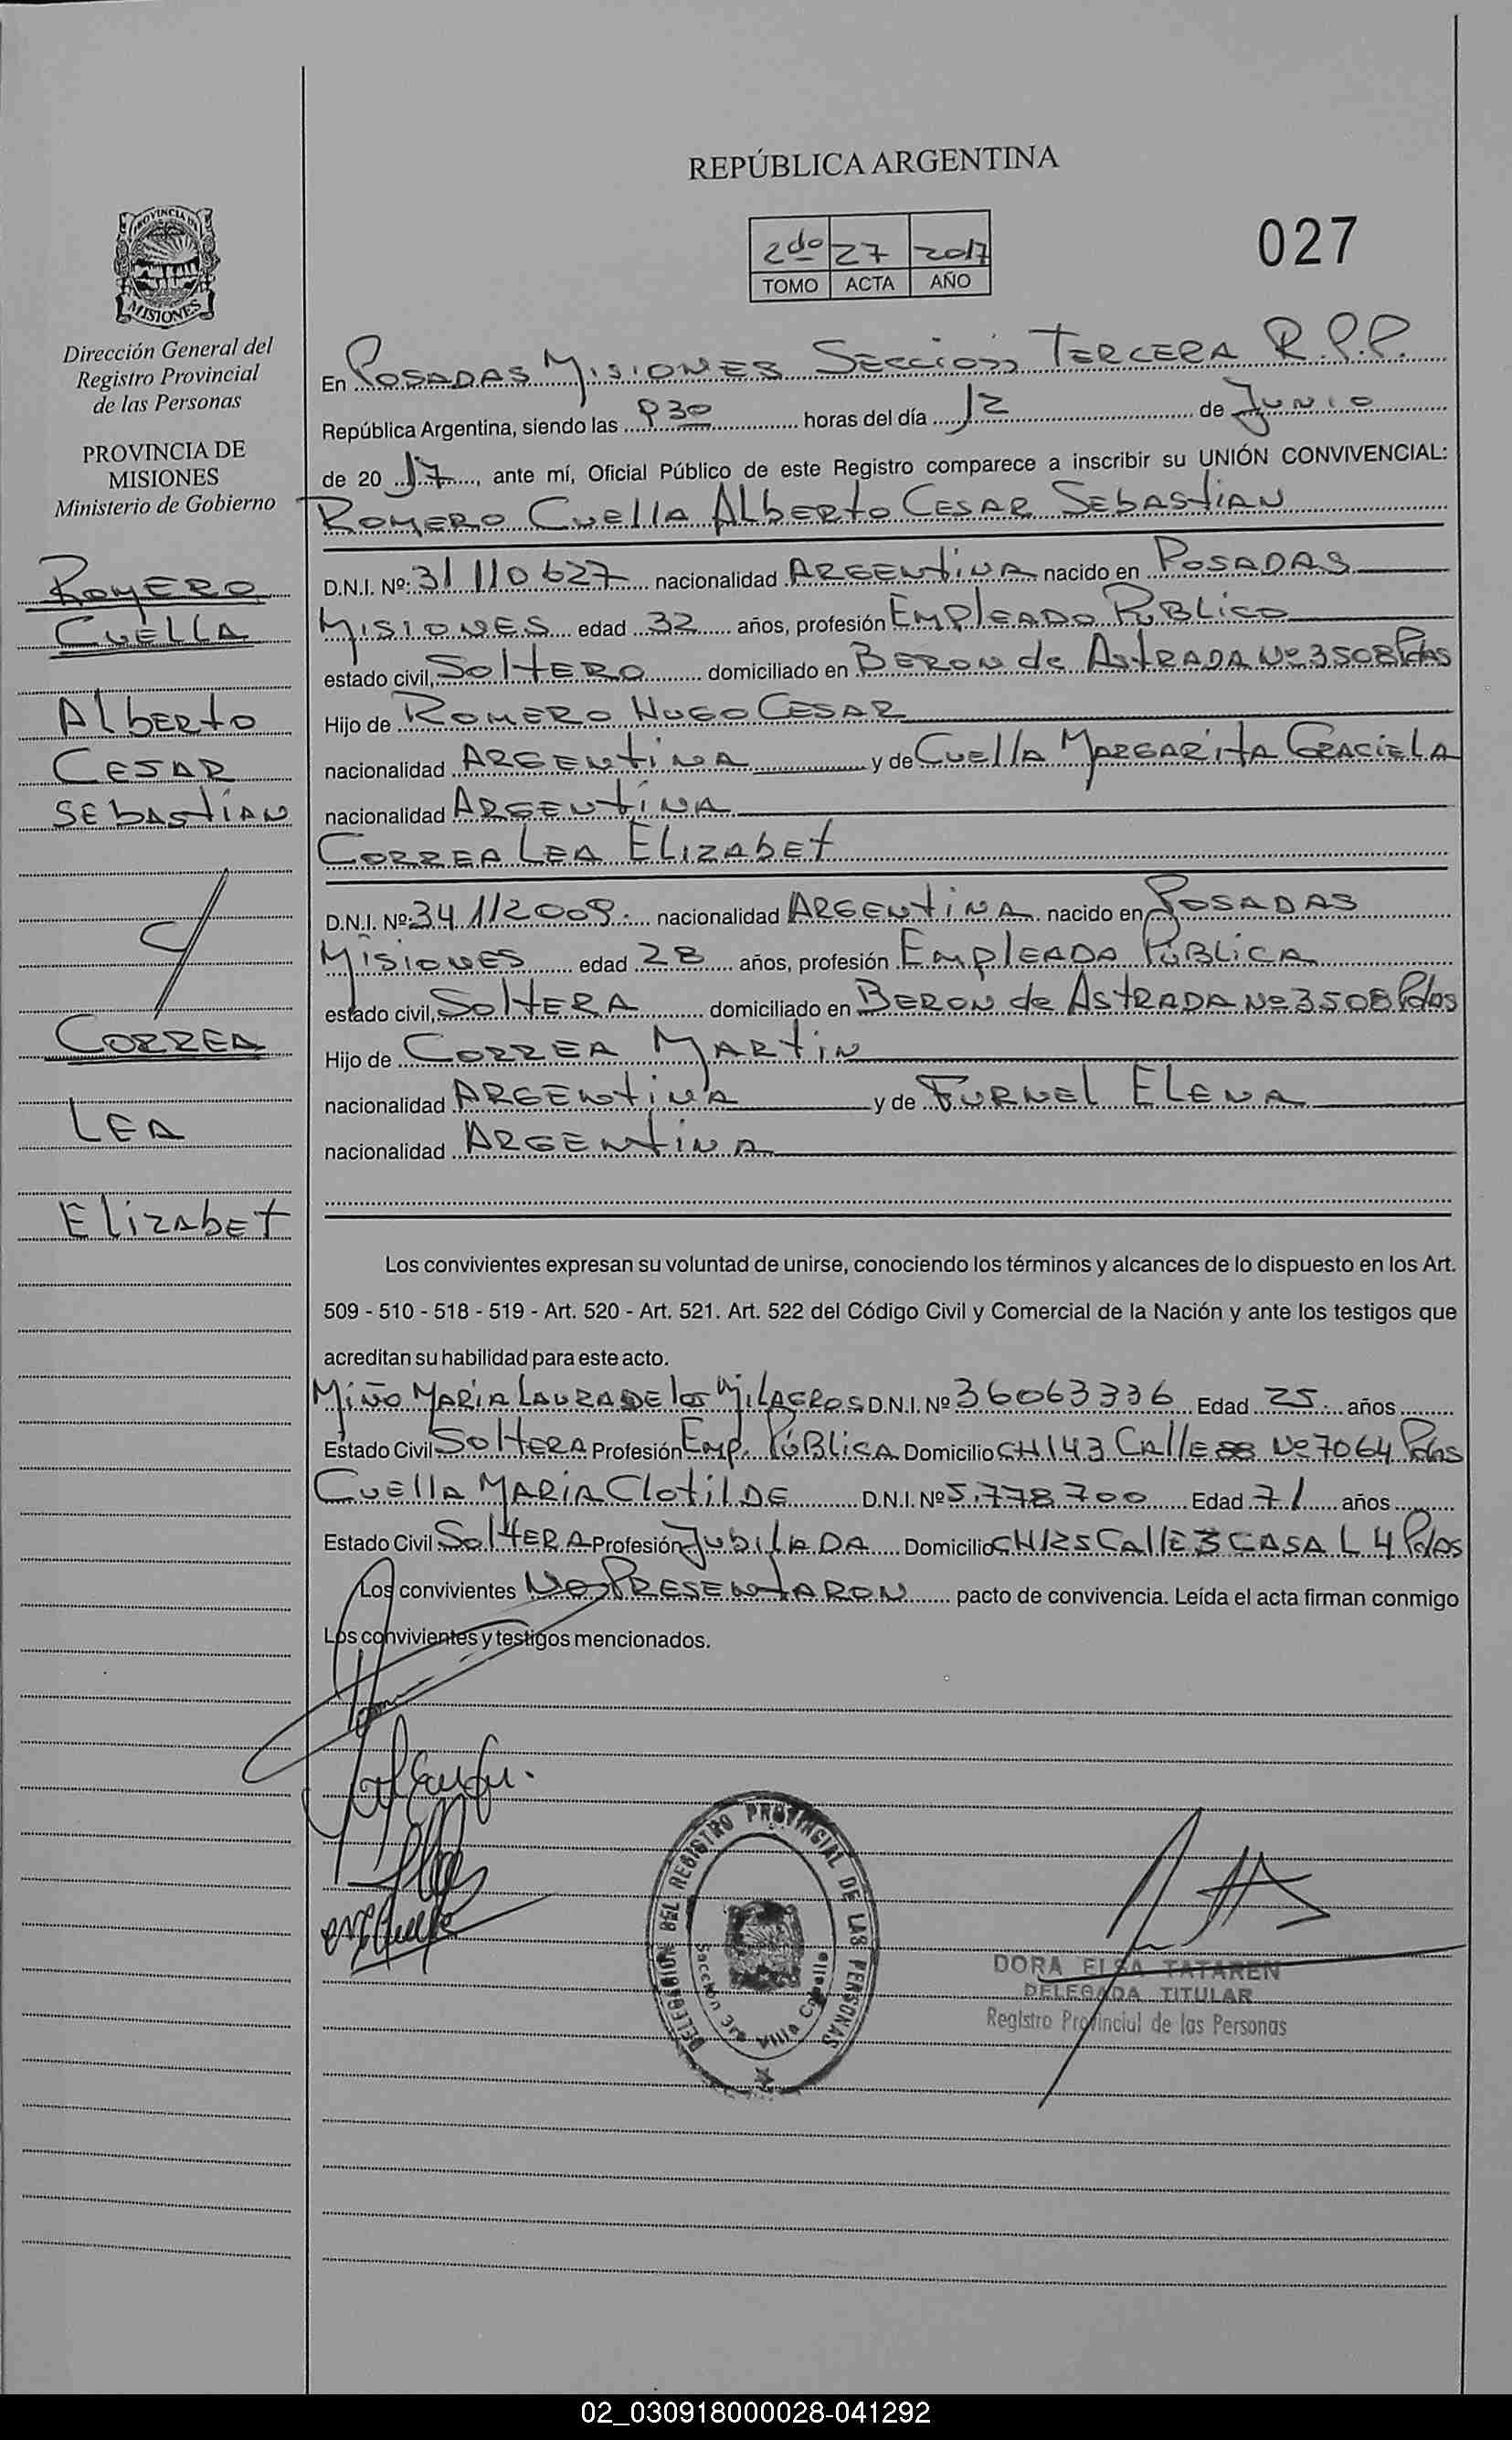 REPÚBLICA ARGENTINA
2do 27 2017
TOMO ACTA AÑO
027
PROVINCIA DE
MISIONES
Dirección General del
Registro Provincial
de las Personas
PROVINCIA DE
MISIONES
Ministerio de Gobierno
ROMERO
CUELLA
AlbERto
CESAR
SEbAStiAN
c/
CORREA
LEA
ElizAbEt
En POSADAS MISIONES SECCIÓN TERCERA R.P.P.
República Argentina, siendo las 930 horas del día 12 de JUNIO
de 20 17, ante mí, Oficial Público de este Registro comparece a inscribir su UNIÓN CONVIVENCIAL:
ROMERO CuellA AlbERto CESAR SEbAStiAN
D.N.I. Nº: 31110627 nacionalidad ARGENtiNA nacido en POSADAS
MISIONES edad 32 años, profesión EMPlEADO PÚBLICO
estado civil, SOltERO domiciliado en BERON de AStRADA Nº 3508 Pdas
Hijo de ROMERO HUGO CESAR
nacionalidad ARGENtiNA y de CuellA MARGARitA GRACiELA
nacionalidad ARGENtiNA
CORREA LEA ElizAbEt
D.N.I. Nº: 34112009 nacionalidad ARGENtiNA nacido en POSADAS
MISIONES edad 28 años, profesión EMPlEADA PÚBLICA
estado civil, SOltERA domiciliado en BERON de AStRADA Nº 3508 Pdas
Hijo de CORREA MARtiN
nacionalidad ARGENtiNA y de FURNEL ELENA
nacionalidad ARGENtiNA
Los convivientes expresan su voluntad de unirse, conociendo los términos y alcances de lo dispuesto en los Art.
509 - 510 - 518 - 519 - Art. 520 - Art. 521. Art. 522 del Código Civil y Comercial de la Nación y ante los testigos que
acreditan su habilidad para este acto.
MiÑO MARIA LAURA DE los MilAGROS D.N.I. Nº 36063336 Edad 25 años
Estado Civil SOltERA Profesión Emp. PÚBLICA Domicilio CH 143 CAllE 88 Nº 7064 Pdas
CuEllA MARIA ClotilDE D.N.I. Nº 5.778.700 Edad 71 años
Estado Civil SOltERA Profesión JubiLADA Domicilio CH 125 CAllE 3 CASA L 4 Pdas
Los convivientes NO PRESENtARON pacto de convivencia. Leída el acta firman conmigo
Los convivientes y testigos mencionados.
DELEGACION DEL REGISTRO PROVINCIAL DE LAS PERSONAS
Sección 3ra Villa Cabello
DORA ELSA TATAREN
DELEGADA TITULAR
Registro Provincial de las Personas
02_030918000028-041292